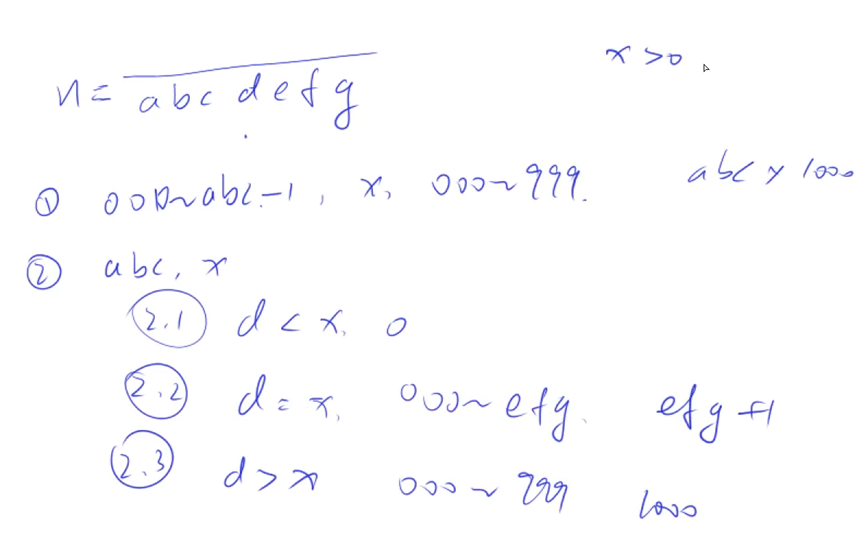 n = abcdefg x > 0
① 000~abc-1, x, 000~999. abc × 1000
② abc, x
2.1 d < x, 0
2.2 d = x, 000~efg. efg+1
2.3 d > x 000~999 1000